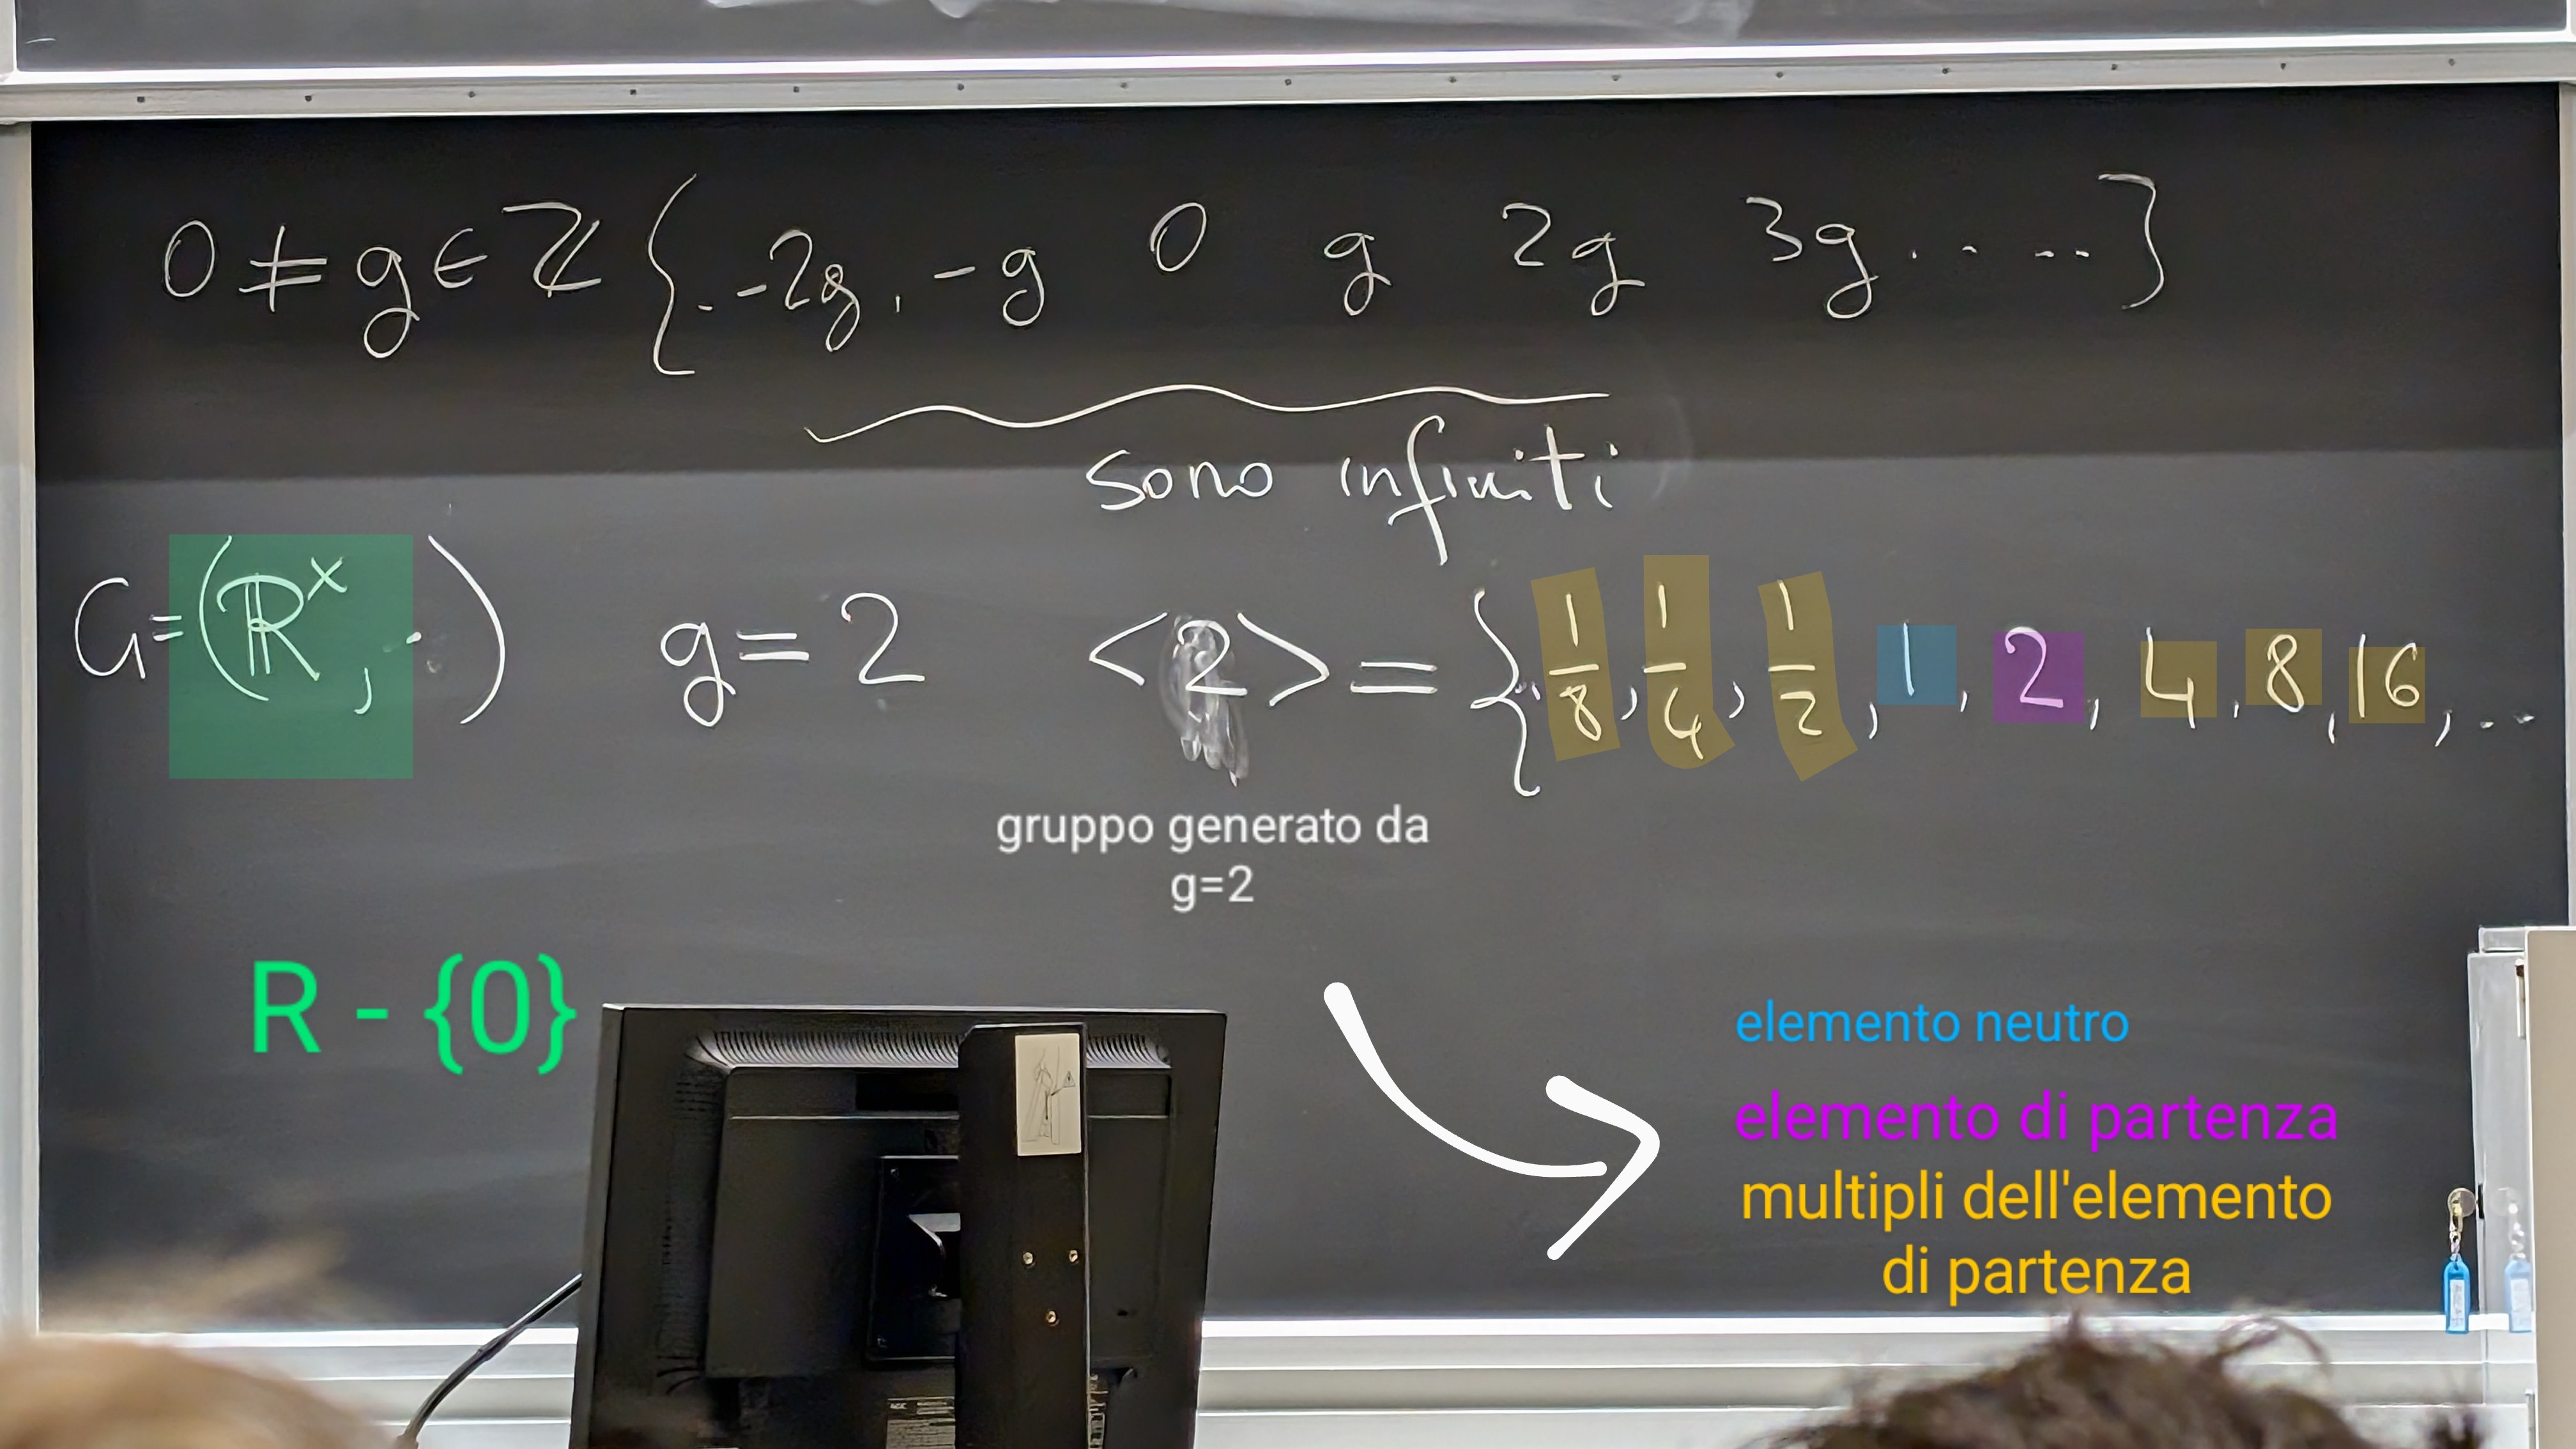 0 ≠ g ∈ ℤ { . -2g, -g 0 g 2g 3g ..... }
sono infiniti
G = (ℝˣ, ·) g = 2 <2> = { .. 1/8, 1/4, 1/2, 1, 2, 4, 8, 16, ...
gruppo generato da
g=2
R - {0}
elemento neutro
elemento di partenza
multipli dell'elemento
di partenza